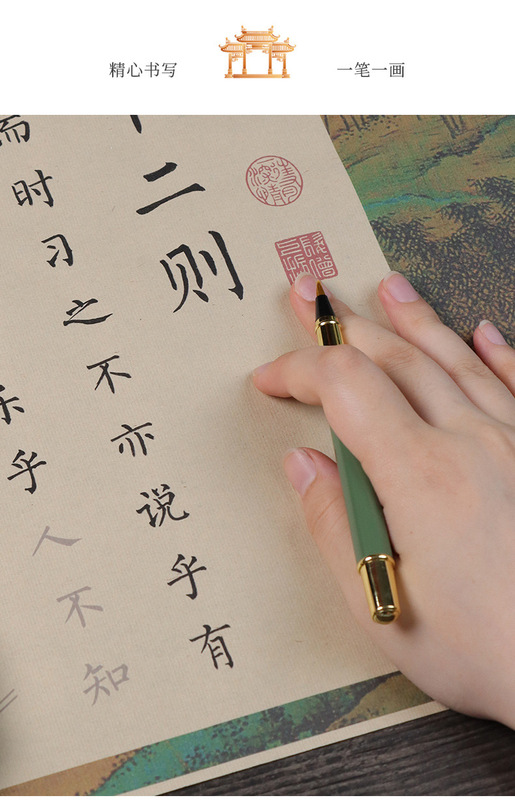 精心书写
一笔一画
二则
而时习之不亦说乎有
乐乎人不知